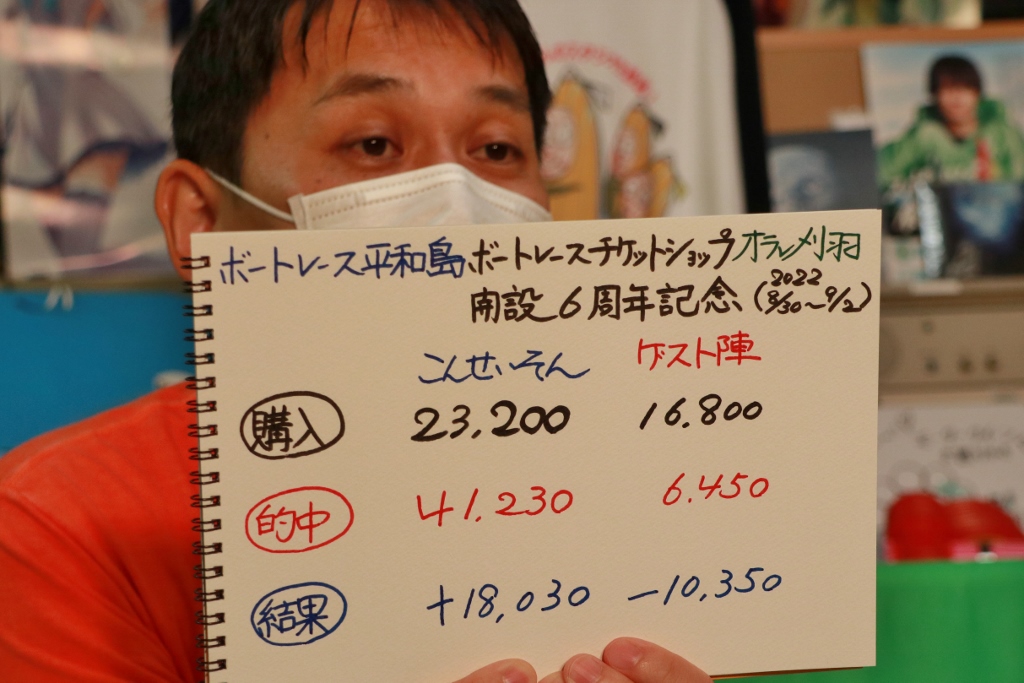 ボートレース平和島ボートレースチケットショップオラレ刈羽
開設6周年記念(2022 8/30～9/2)
こんせいそん ゲスト陣
購入 23,200 16.800
的中 41.230 6.450
結果 +18,030 -10,350